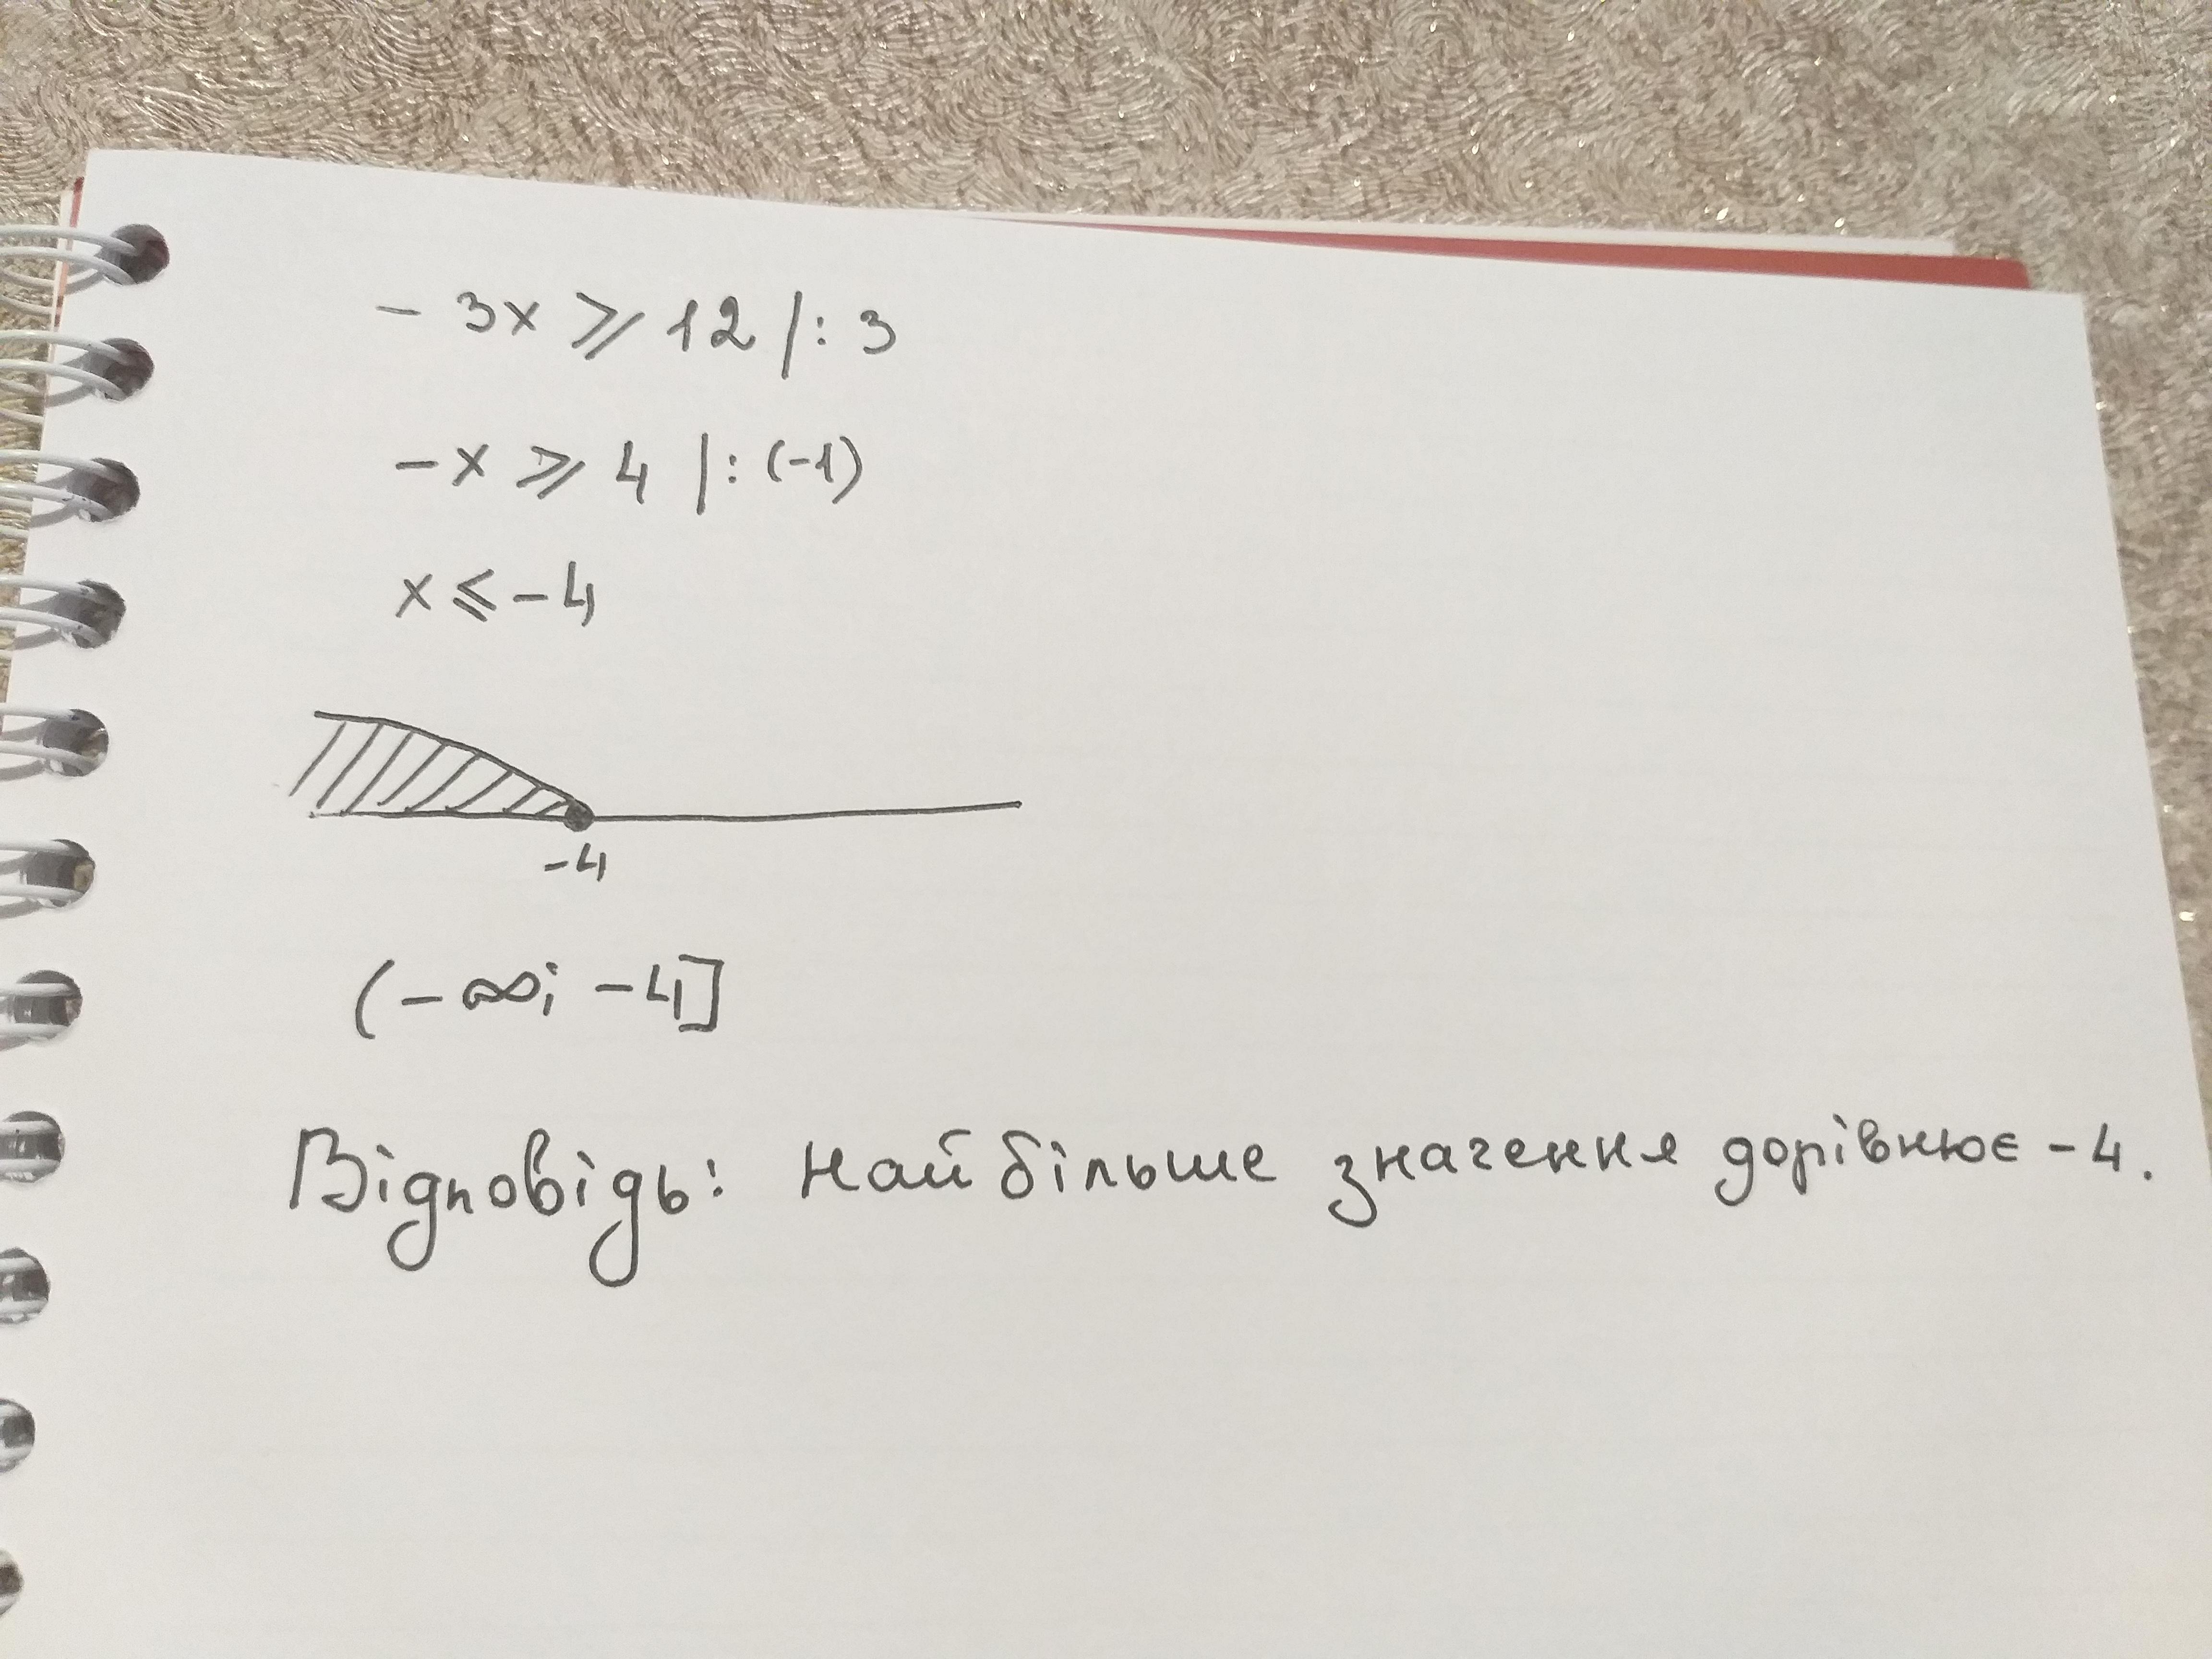 - 3x ⩾ 12 | : 3
-x ⩾ 4 | : (-1)
x ⩽ -4
-4
(-∞; -4]
Відповідь: найбільше значення дорівнює -4.